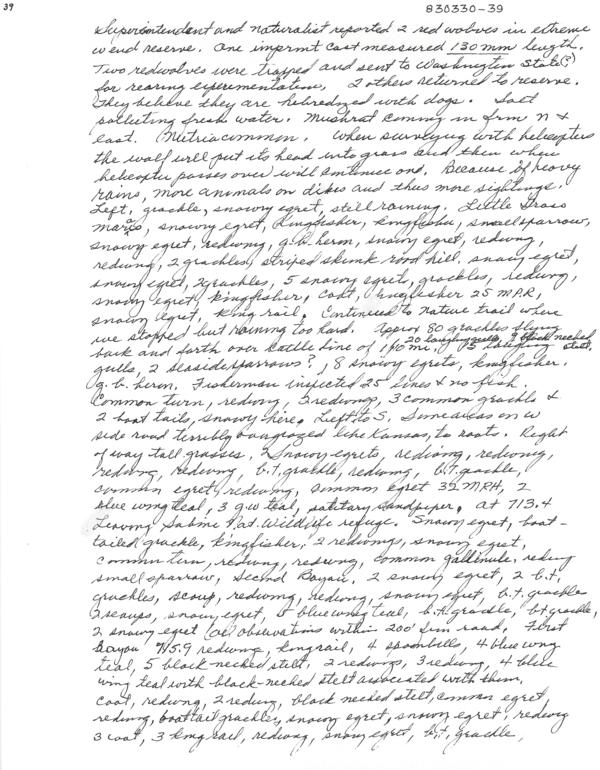 39
830330-39
Superintendent and naturalist reported 2 red wolves in extreme
w end reserve. One imprint cast measured 130 mm length.
Two redwolves were trapped and sent to Washington State(?)
for rearing experimentation, 2 others returned to reserve.
They believe they are hebredized with dogs. Salt
polluting fresh water. Muskrat coming in frm n &
east. Nutria common. When surveying with helicopters
the wolf will put its head into grass and then when
helicopter passes over will continue on. Because of heavy
rains, more animals on dikes and thus more sightings.
Left, grackle, snowy egret, still raining. Little Grass
snowy egret, kingfisher, kingfisher, small sparrow,
snowy egret, redwing, g.b. heron, snowy egret, redwing,
redwing, 2 grackles, striped skunk road kill, snowy egret,
snowy egret, 2 grackles, 5 snowy egrets, grackles, redwing,
snowy egret, kingfisher, coot, kingfisher 25 M.P.R,
snowy egret, king rail. Continued to nature trail where
we stopped but raining too hard. Approx 80 grackles flying
back and forth over cattle line of 1/10 mi. 20 laughing gulls, 9 black necked stilt,
gulls, 2 seaside sparrows?, 8 snowy egrets, kingfisher.
g.b. heron. Fisherman inspected 25 lines & no fish.
Common turn, redwing, 2 redwings, 3 common grackle &
2 boat tails, snowy here. Left to S. Some areas on w
side road terribly overgrazed like Kansas, to roots. Right
of way tall grasses. 2 Snowy egrets, redwing, redwing,
redwing, redwing, b.t. grackle, redwing, b.t. grackle,
common egret, redwing, common egret 32 MRH, 2
blue wing teal, 3 gw teal, solitary sandpiper. At 713.4
Leaving Sabine Nat. Wildlife refuge. Snowy egret, boat-
tailed grackle, kingfisher, 2 redwings, snowy egret,
common turn, redwing, redwing, common gallinule, redwing
small sparrow, Second Bayou. 2 snowy egret, 2 b.t.
grackles, scaup, redwing, redwing, snowy egret, b.t. grackle
2 scaups, snowy egret, 5 blue wing teal, b.t. grackle, bt grackle,
2 snowy egret (all observations within 200' frm road, First
bayou 715.9 redwing, king rail, 4 spoonbills, 4 blue wing
teal, 5 black-necked stilt, 2 redwings, 3 redwing, 4 blue
wing teal with black-necked stilt associated with them.
Coot, redwing, 2 redwing, black necked stilt, common egret,
redwing, boattail grackles, snowy egret, snowy egret, redwing
3 coot, 3 king rail, redwing, snowy egret, b.t. grackle,